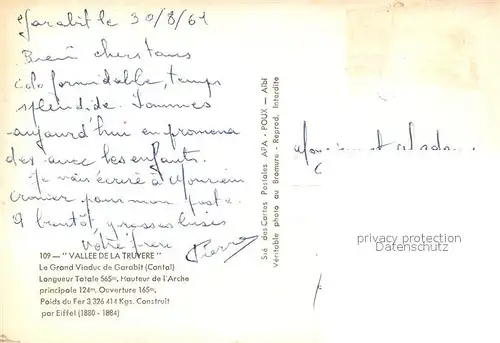 Garabit le 30/8/61
Bien chers tous
colo formidable, temps
splendide. Sommes
aujourd'hui en promena
des avec les enfants.
Je vais écrire à Monsieur
pour mon poste.
A bientôt, grosses bises
Votre frère
Pierre
109 — " VALLEE DE LA TRUYERE "
Le Grand Viaduc de Garabit (Cantal)
Longueur Totale 565m. Hauteur de l'Arche
principale 124m. Ouverture 165m.
Poids du Fer 3 326 414 Kgs. Construit
par Eiffel (1880 - 1884)
Sté des Cartes Postales APA - POUX — Albi
Véritable photo au Bromure - Reprod. Interdite
Monsieur et Madame
privacy protection
Datenschutz